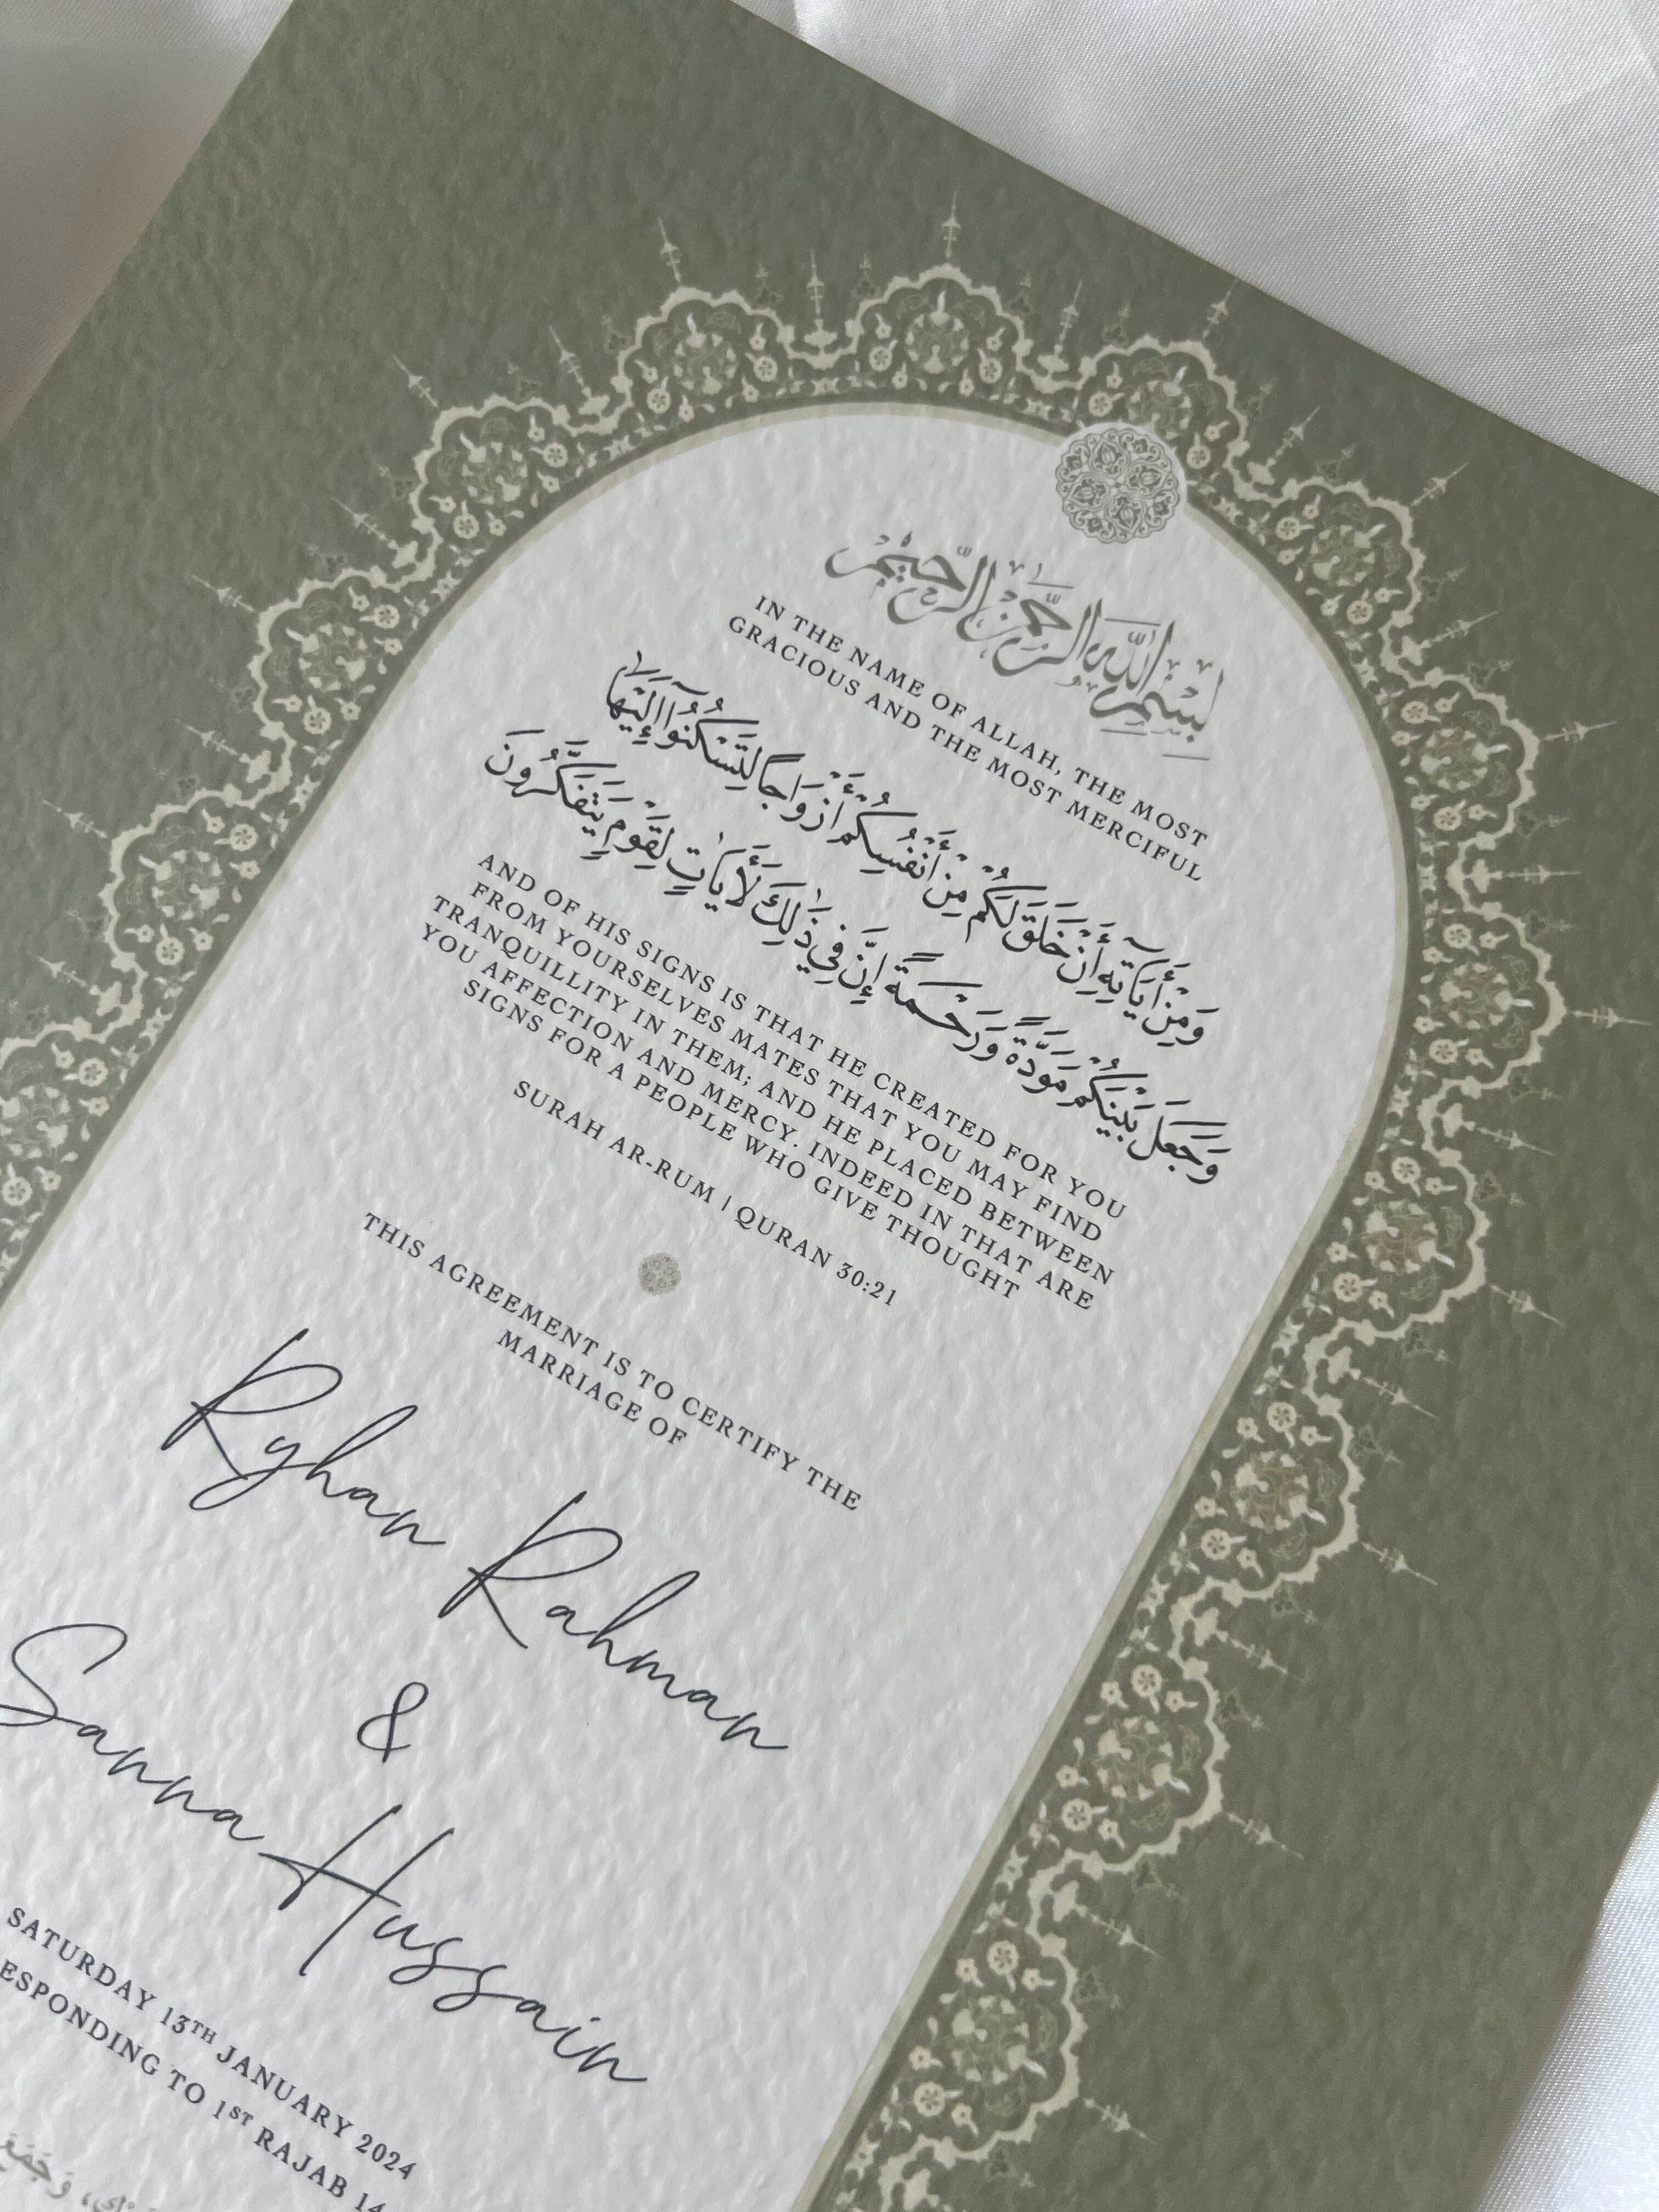 بِسْمِ اللَّهِ الرَّحْمَنِ الرَّحِيمِ
IN THE NAME OF ALLAH, THE MOST
GRACIOUS AND THE MOST MERCIFUL
وَمِنْ أَيَاتِهِ أَنْ خَلَقَ لَكُمْ مِنْ أَنْفُسِكُمْ أَزْوَاجًا لِتَسْكُنُوا إِلَيْهَا
وَجَعَلَ بَيْنَكُمْ مَوَدَّةً وَرَحْمَةً إِنَّ فِي ذَٰلِكَ لَأَيَاتٍ لِقَوْمٍ يَتَفَكَّرُونَ
AND OF HIS SIGNS IS THAT HE CREATED FOR YOU
FROM YOURSELVES MATES THAT YOU MAY FIND
TRANQUILLITY IN THEM; AND HE PLACED BETWEEN
YOU AFFECTION AND MERCY. INDEED IN THAT ARE
SIGNS FOR A PEOPLE WHO GIVE THOUGHT
SURAH AR-RUM | QURAN 30:21
THIS AGREEMENT IS TO CERTIFY THE
MARRIAGE OF
Ryhan Rahman
&
Sanna Hussain
SATURDAY 13TH JANUARY 2024
ESPONDING TO 1ST RAJAB 14